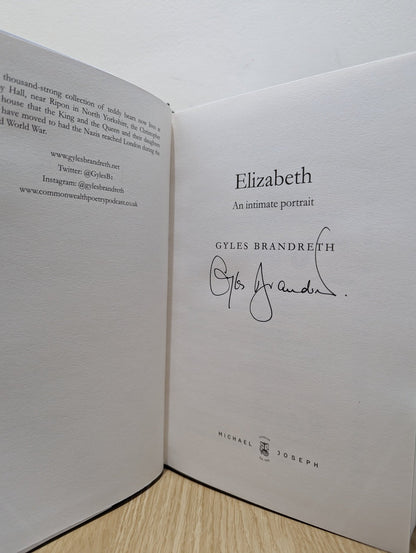 thousand-strong collection of teddy bears now live at
Hall, near Ripon in North Yorkshire, the
house that the King and the Queen and their daughters
have moved to had the Nazis reached London during the
World War.
www.gylesbrandreth.net
Twitter: @GylesB1
Instagram: @gylesbrandreth
www.commonwealthpoetrypodcast.co.uk
Elizabeth
An intimate portrait
GYLES BRANDRETH
Gyles Brandreth.
MICHAEL JOSEPH